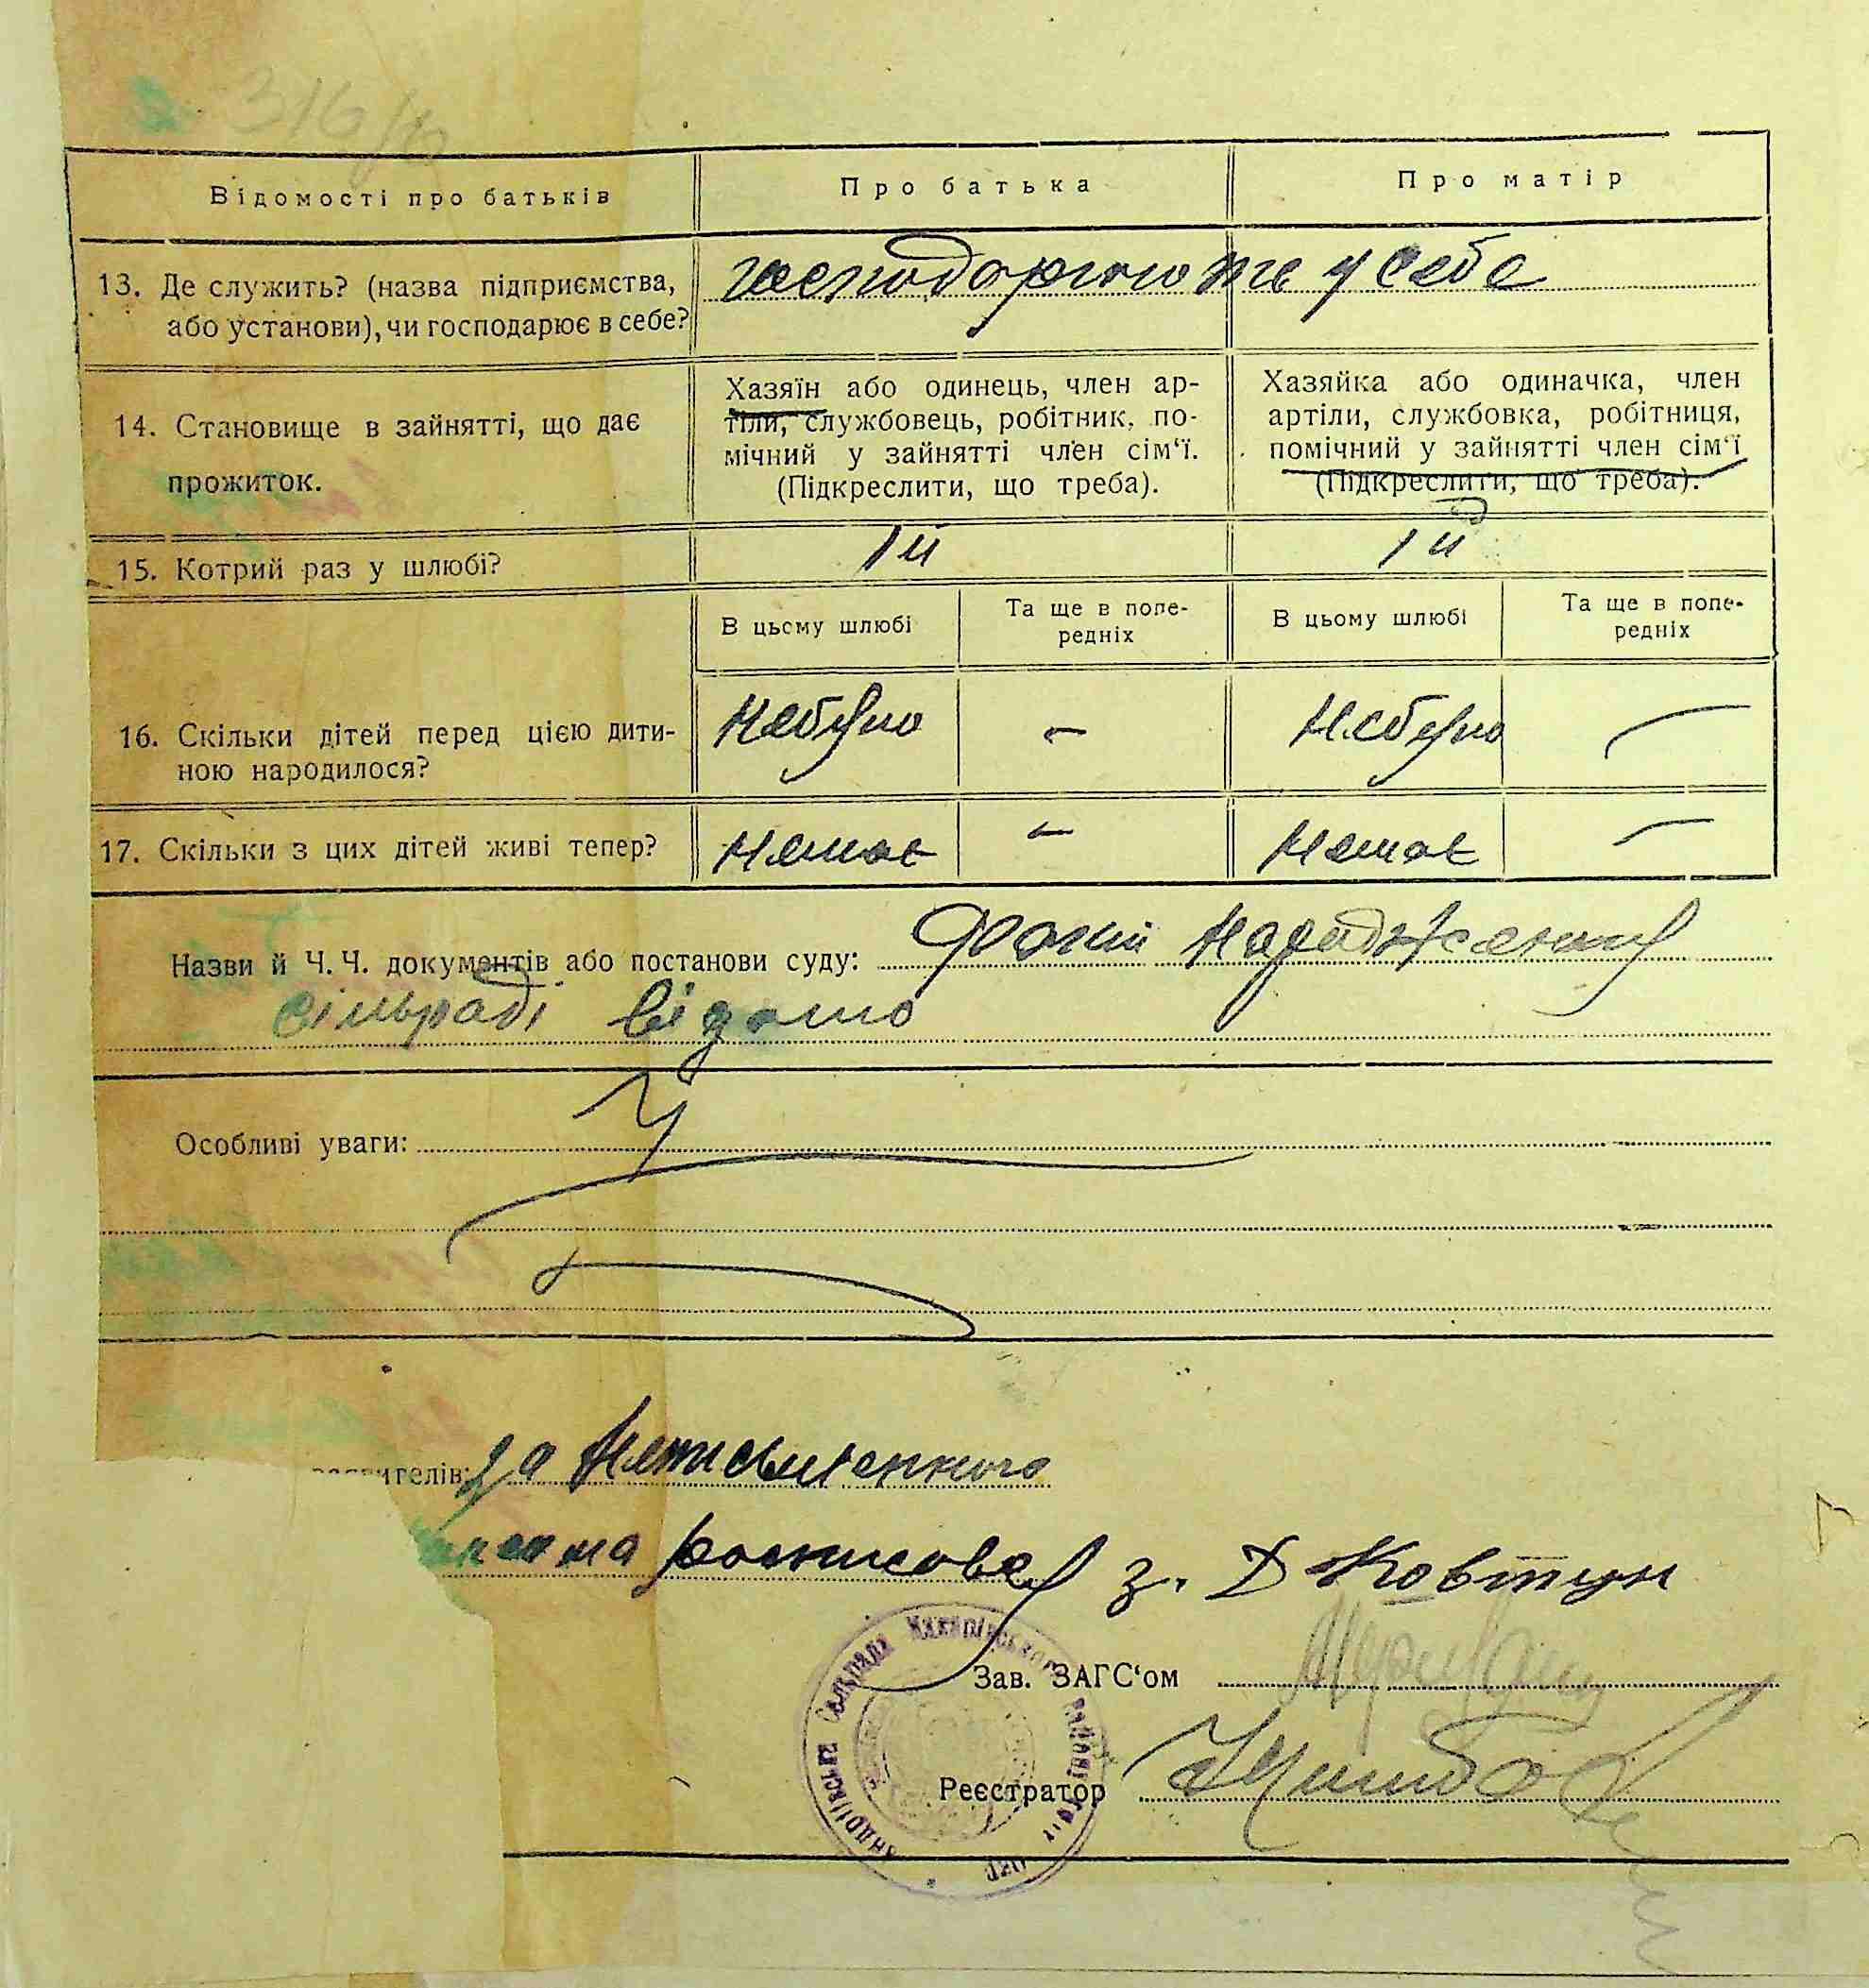 316/
Відомості про батьків
Про батька
Про матір
13. Де служить? (назва підприємства,
або установи), чи господарює в себе?
господарюють у себе
14. Становище в зайнятті, що дає
прожиток.
Хазяїн або одинець, член ар-
тіли, службовець, робітник, по-
мічний у зайнятті член сім‘ї.
(Підкреслити, що треба).
Хазяйка або одиначка, член
артіли, службовка, робітниця,
помічний у зайнятті член сім‘ї
(Підкреслити, що треба).
15. Котрий раз у шлюбі?
1й
1й
В цьому шлюбі
Та ще в попе-
редніх
В цьому шлюбі
Та ще в попе-
редніх
16. Скільки дітей перед цією дити-
ною народилося?
небуло
–
небуло
–
17. Скільки з цих дітей живі тепер?
немає
–
немає
–
Назви й Ч. Ч. документів або постанови суду: Факт народження
сільраді відомо
Особливі уваги:
за неписьменного
росписовся з. Д Ковтун
Зав. ЗАГС‘ом
Реєстратор
ндріївська Сельрада Макарівського району